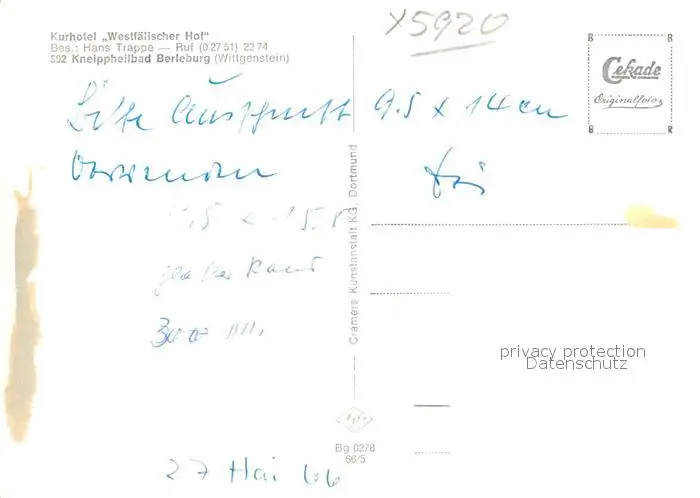 Kurhotel „Westfälischer Hof"
Bes.: Hans Trappe — Ruf (0 27 51) 22 74
592 Kneippheilbad Berleburg (Wittgenstein)
X5920
B B
Cekade
Originalfoto
B R
Bitte Ausschnitt 9.5 x 14 cm
glatter Rand
300
27 Mai 66
Cramers Kunstanstalt KG, Dortmund
Bg 0278
66/5
privacy protection
Datenschutz